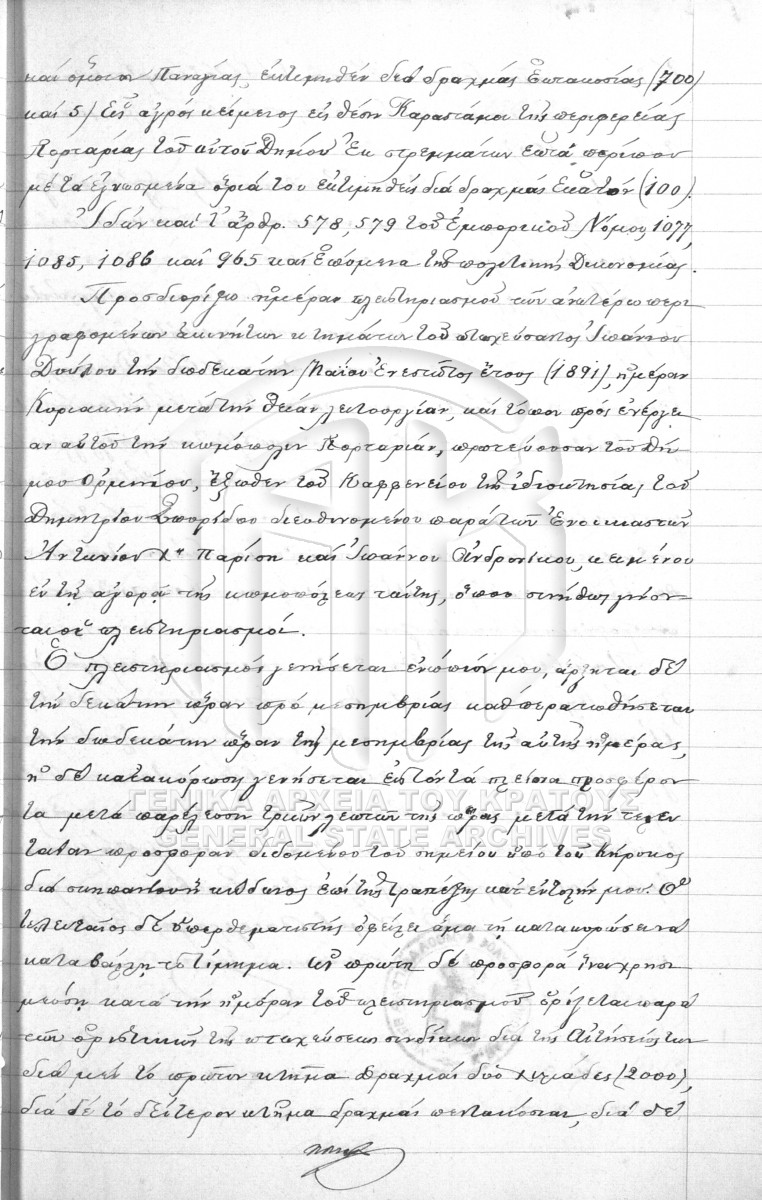 καί ὅμοιον Παναγίας, ἐκτιμηθέν διά δραχμάς ἑπτακοσίας (700)
καί 5) Εἷς ἀγρός κείμενος εἰς θέσιν Καραστάμου τῆς περιφερείας
Πορταριᾶς τοῦ αὐτοῦ Δήμου ἐκ στρεμμάτων ἑπτά περίπου
μέ τά ἐγνωσμένα ὅριά του ἐκτιμηθείς διά δραχμάς Ἑκατόν (100).
Ἰδών καί τ' ἄρθρ. 578, 579 τοῦ Ἐμπορικοῦ Νόμου, 1077,
1085, 1086 καί 965 καί ἑπόμενα τῆς πολιτικῆς Δικονομίας.
Προσδιορίζω ἡμέραν πλειστηριασμοῦ τῶν ἀνωτέρω περι
γραφομένων ἀκινήτων κτημάτων τοῦ πτωχεύσαντος Ἰωάννου
Δούκου τήν δωδεκάτην Μαΐου ἐνεστῶτος ἔτους (1891), ἡμέραν
Κυριακήν μετά τήν θείαν λειτουργίαν, καί τόπον πρός ἐνέργει
αν αὐτοῦ τήν κωμόπολιν Πορταριάν, πρωτεύουσαν τοῦ Δή
μου Ὀρμινίου, ἔξωθεν τοῦ Καφφενείου τῆς ἰδιοκτησίας τοῦ
Δημητρίου διευθυνομένου παρά τῶν ἐνοικιαστῶν
Ἀντωνίου Χ" Παρίση καί Ἰωάννου Ἀνδρονίκου, κειμένου
ἐν τῇ ἀγορᾷ τῆς κωμοπόλεως ταύτης, ὅπου συνήθως γίνον
ται οἱ πλειστηριασμοί.
Ὁ πλειστηριασμός γενήσεται ἐνώπιόν μου, ἄρξηται δέ
τήν δεκάτην ὥραν πρό μεσημβρίας καί περατωθήσεται
τήν δωδεκάτην ὥραν τῆς μεσημβρίας τῆς αὐτῆς ἡμέρας,
ἡ δέ κατακύρωσις γενήσεται εἰς τόν τά πλείονα προσφέρον
τα μετά παρέλευσιν τριῶν λεπτῶν τῆς ὥρας μετά τήν τελευ
ταίαν προσφοράν διδομένου τοῦ σημείου ὑπό τοῦ Κήρυκος
διά σκηπανίου ἤ κώδωνος ἐπί τῆς τραπέζης κατ' ἐντολήν μου. Ὁ
τελευταῖος δέ ὑπερθεματιστής ὀφείλει ἅμα τῇ κατακυρώσει νά
καταβάλλῃ τό τίμημα. Ἡ πρώτη δέ προσφορά ἵνα χρησι
μεύσῃ κατά τήν ἡμέραν τοῦ πλειστηριασμοῦ ὁρίζεται παρά
τῶν ὁριστικῶν τῆς πτωχεύσεως συνδίκων διά τῆς Αἰτήσεώς των
διά μέν τό πρῶτον κτῆμα δραχμάς δύο χιλιάδες (2000),
διά δέ τό δεύτερον κτῆμα δραχμάς πεντακοσίας, διά δέ
ΓΕΝΙΚΑ ΑΡΧΕΙΑ ΤΟΥ ΚΡΑΤΟΥΣ
GENERAL STATE ARCHIVES